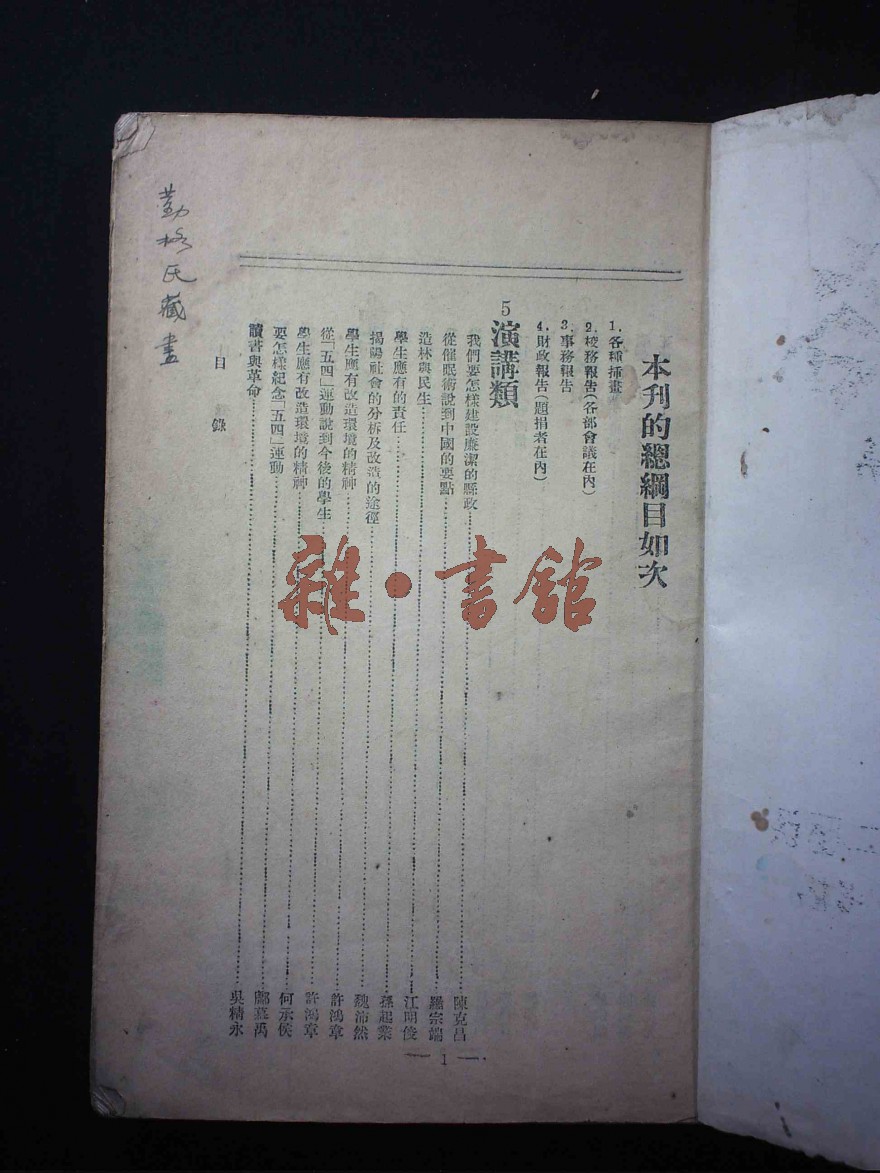 本刋的總綱目如次
1.各種揷畫
2.校務報告(各部會議在內)
3.事務報告
4.財政報告(題捐者在內)
5 演講類
我們要怎樣建設廉潔的縣政……陳克昌
從催眠術說到中國的要點……羅宗端
造林與民生……江明俊
學生應有的責任……孫起業
揭陽社會的分析及改造的途徑……魏沛然
學生應有改造環境的精神……許鴻章
從「五四」運動說到今後的學生……許鴻章
學生應有改造環境的精神……何承侯
要怎樣紀念「五四」運動……鄺慕禹
讀書與革命……吳精永
目錄
— 1 —
氏藏
雜·書舘